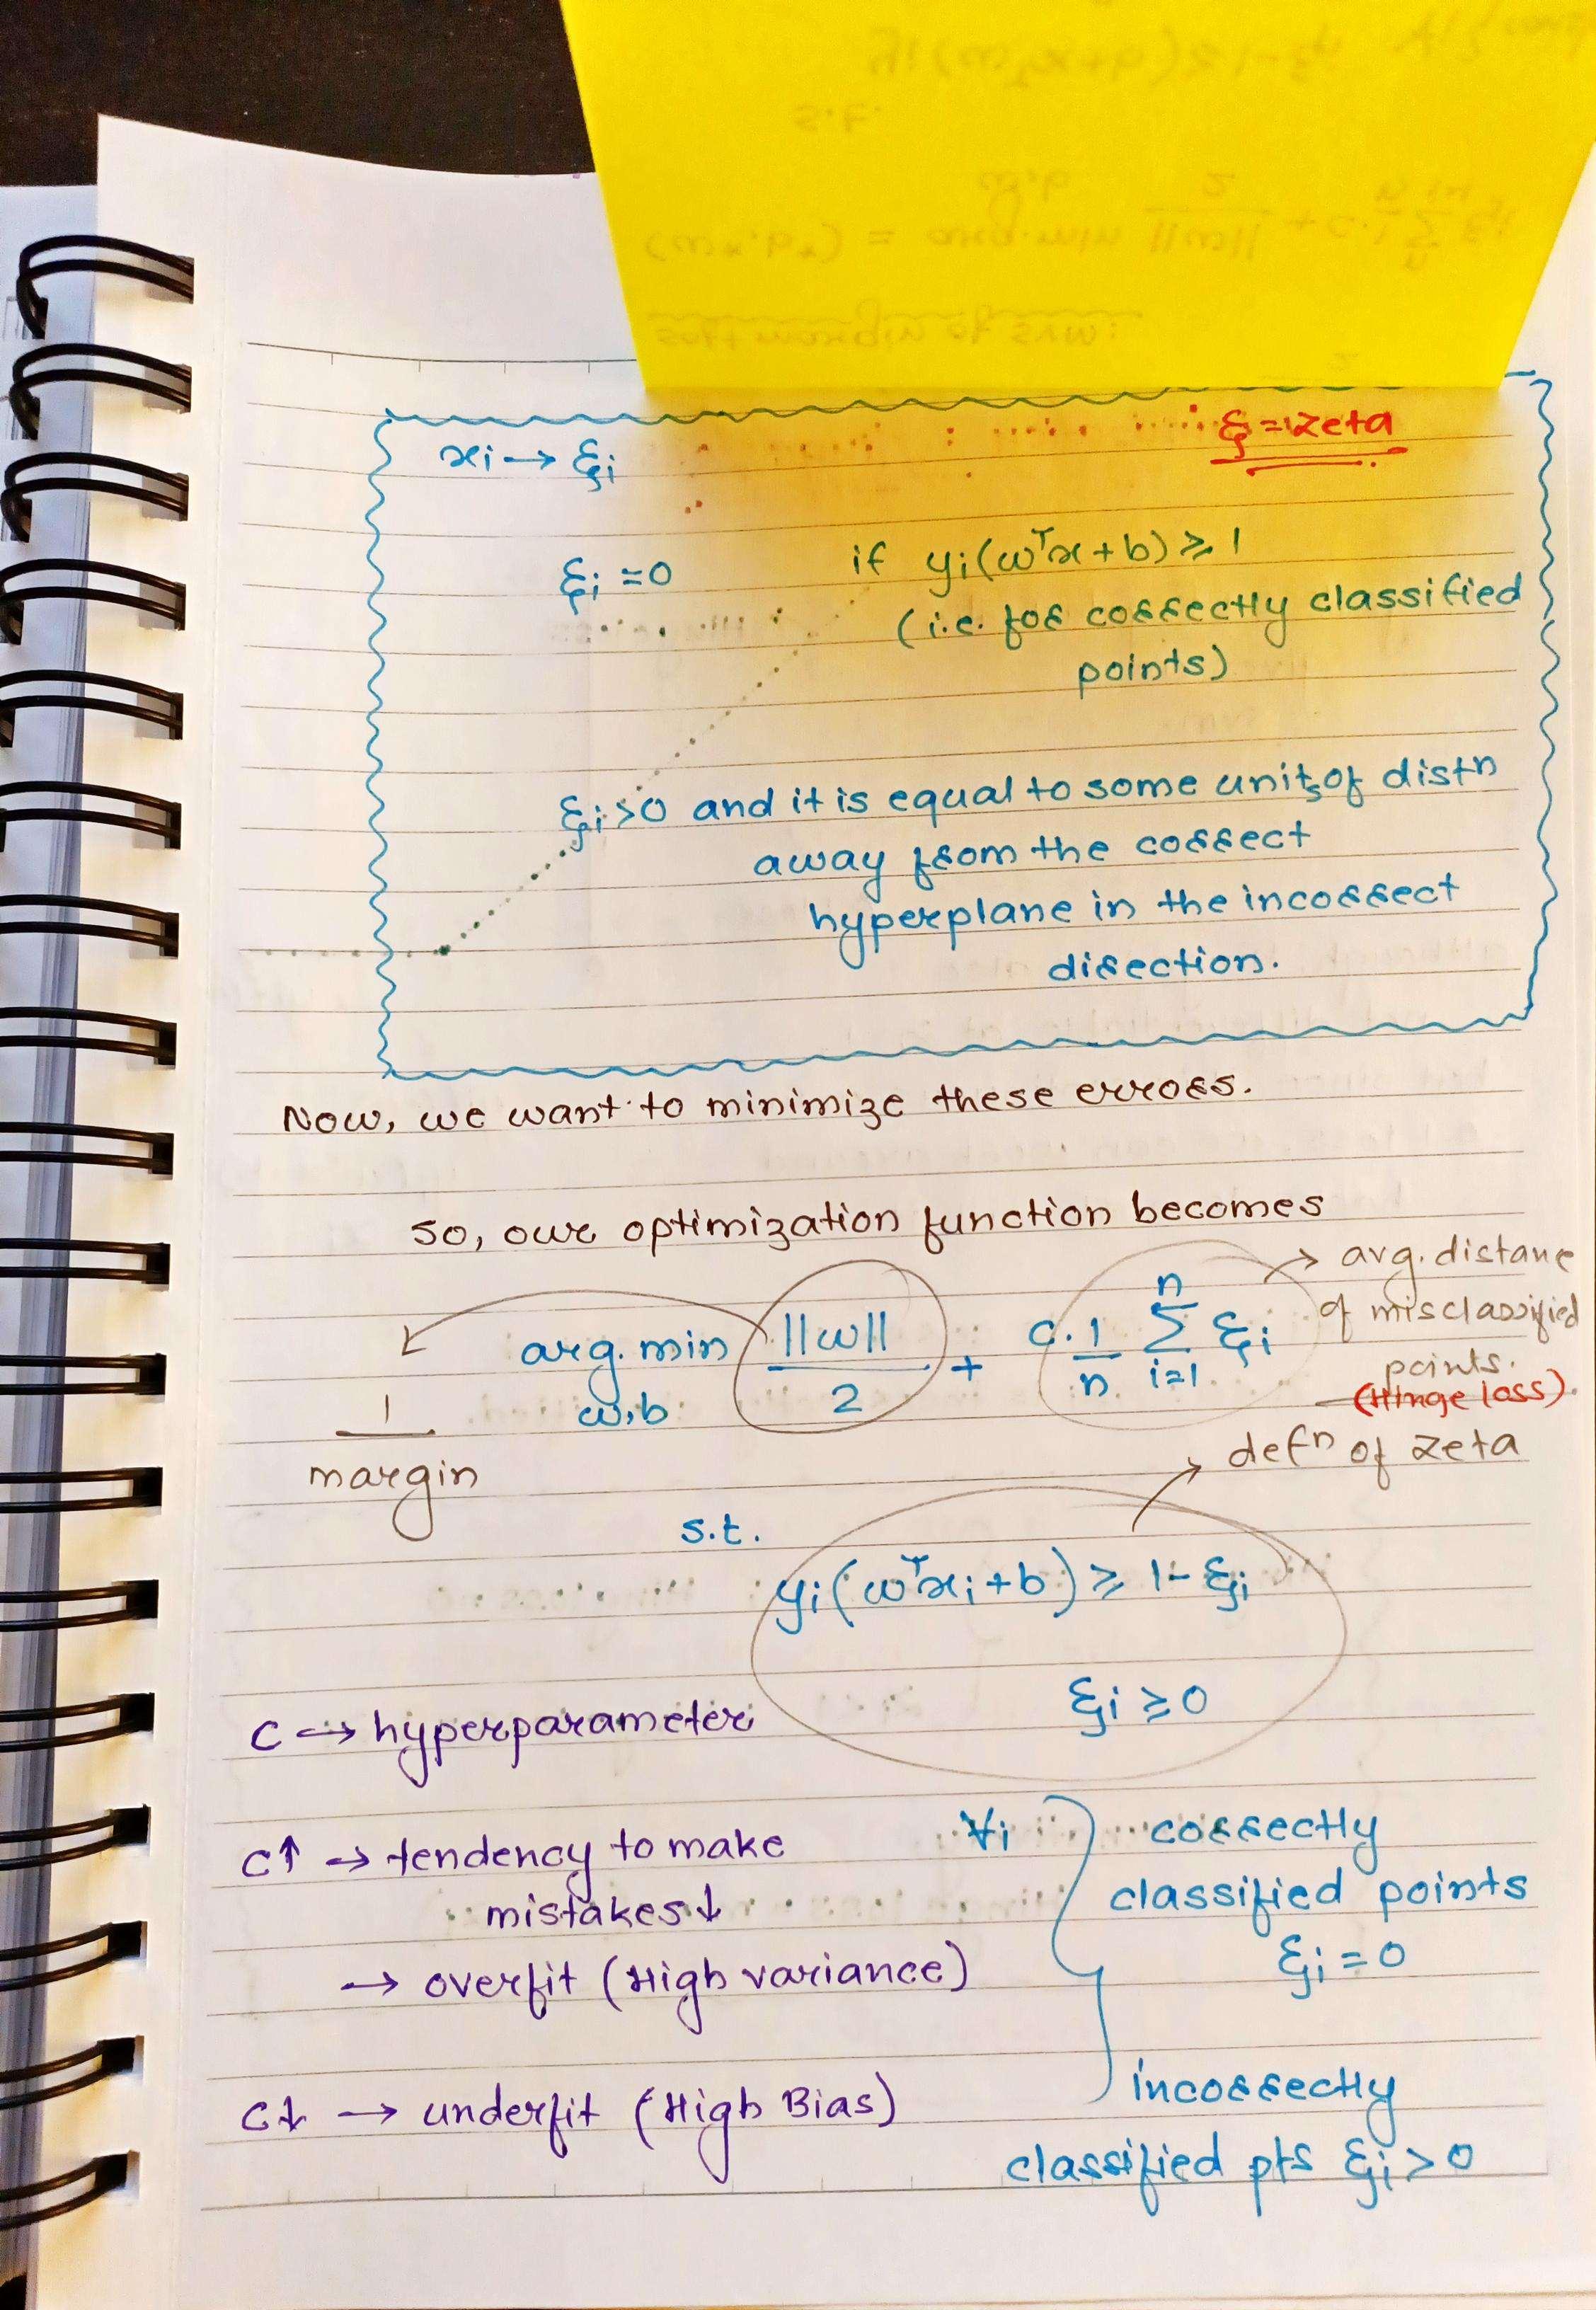 ξ = zeta
xi → ξi
ξi = 0 if yi(wᵀx + b) ≥ 1
(i.e. for correctly classified
points)
ξi > 0 and it is equal to some units of distⁿ
away from the correct
hyperplane in the incorrect
direction.
Now, we want to minimize these errors.
So, our optimization function becomes
arg. min ||w||/2 + C. 1/n Σ ξi
w,b
n
i=1
avg. distane
of misclassified
points.
(Hinge loss).
1
margin
defⁿ of zeta
s.t.
yi(wᵀxi + b) ≥ 1 - ξi
ξi ≥ 0
C → hyperparameter
C↑ → tendency to make
mistakes↓
→ overfit (High variance)
C↓ → underfit (High Bias)
∀i correctly
classified points
ξi = 0
incorrectly
classified pts ξi > 0